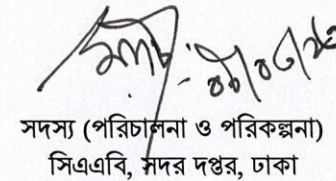 সদস্য (পরিচালনা ও পরিকল্পনা)
সিএএবি, সদর দপ্তর, ঢাকা